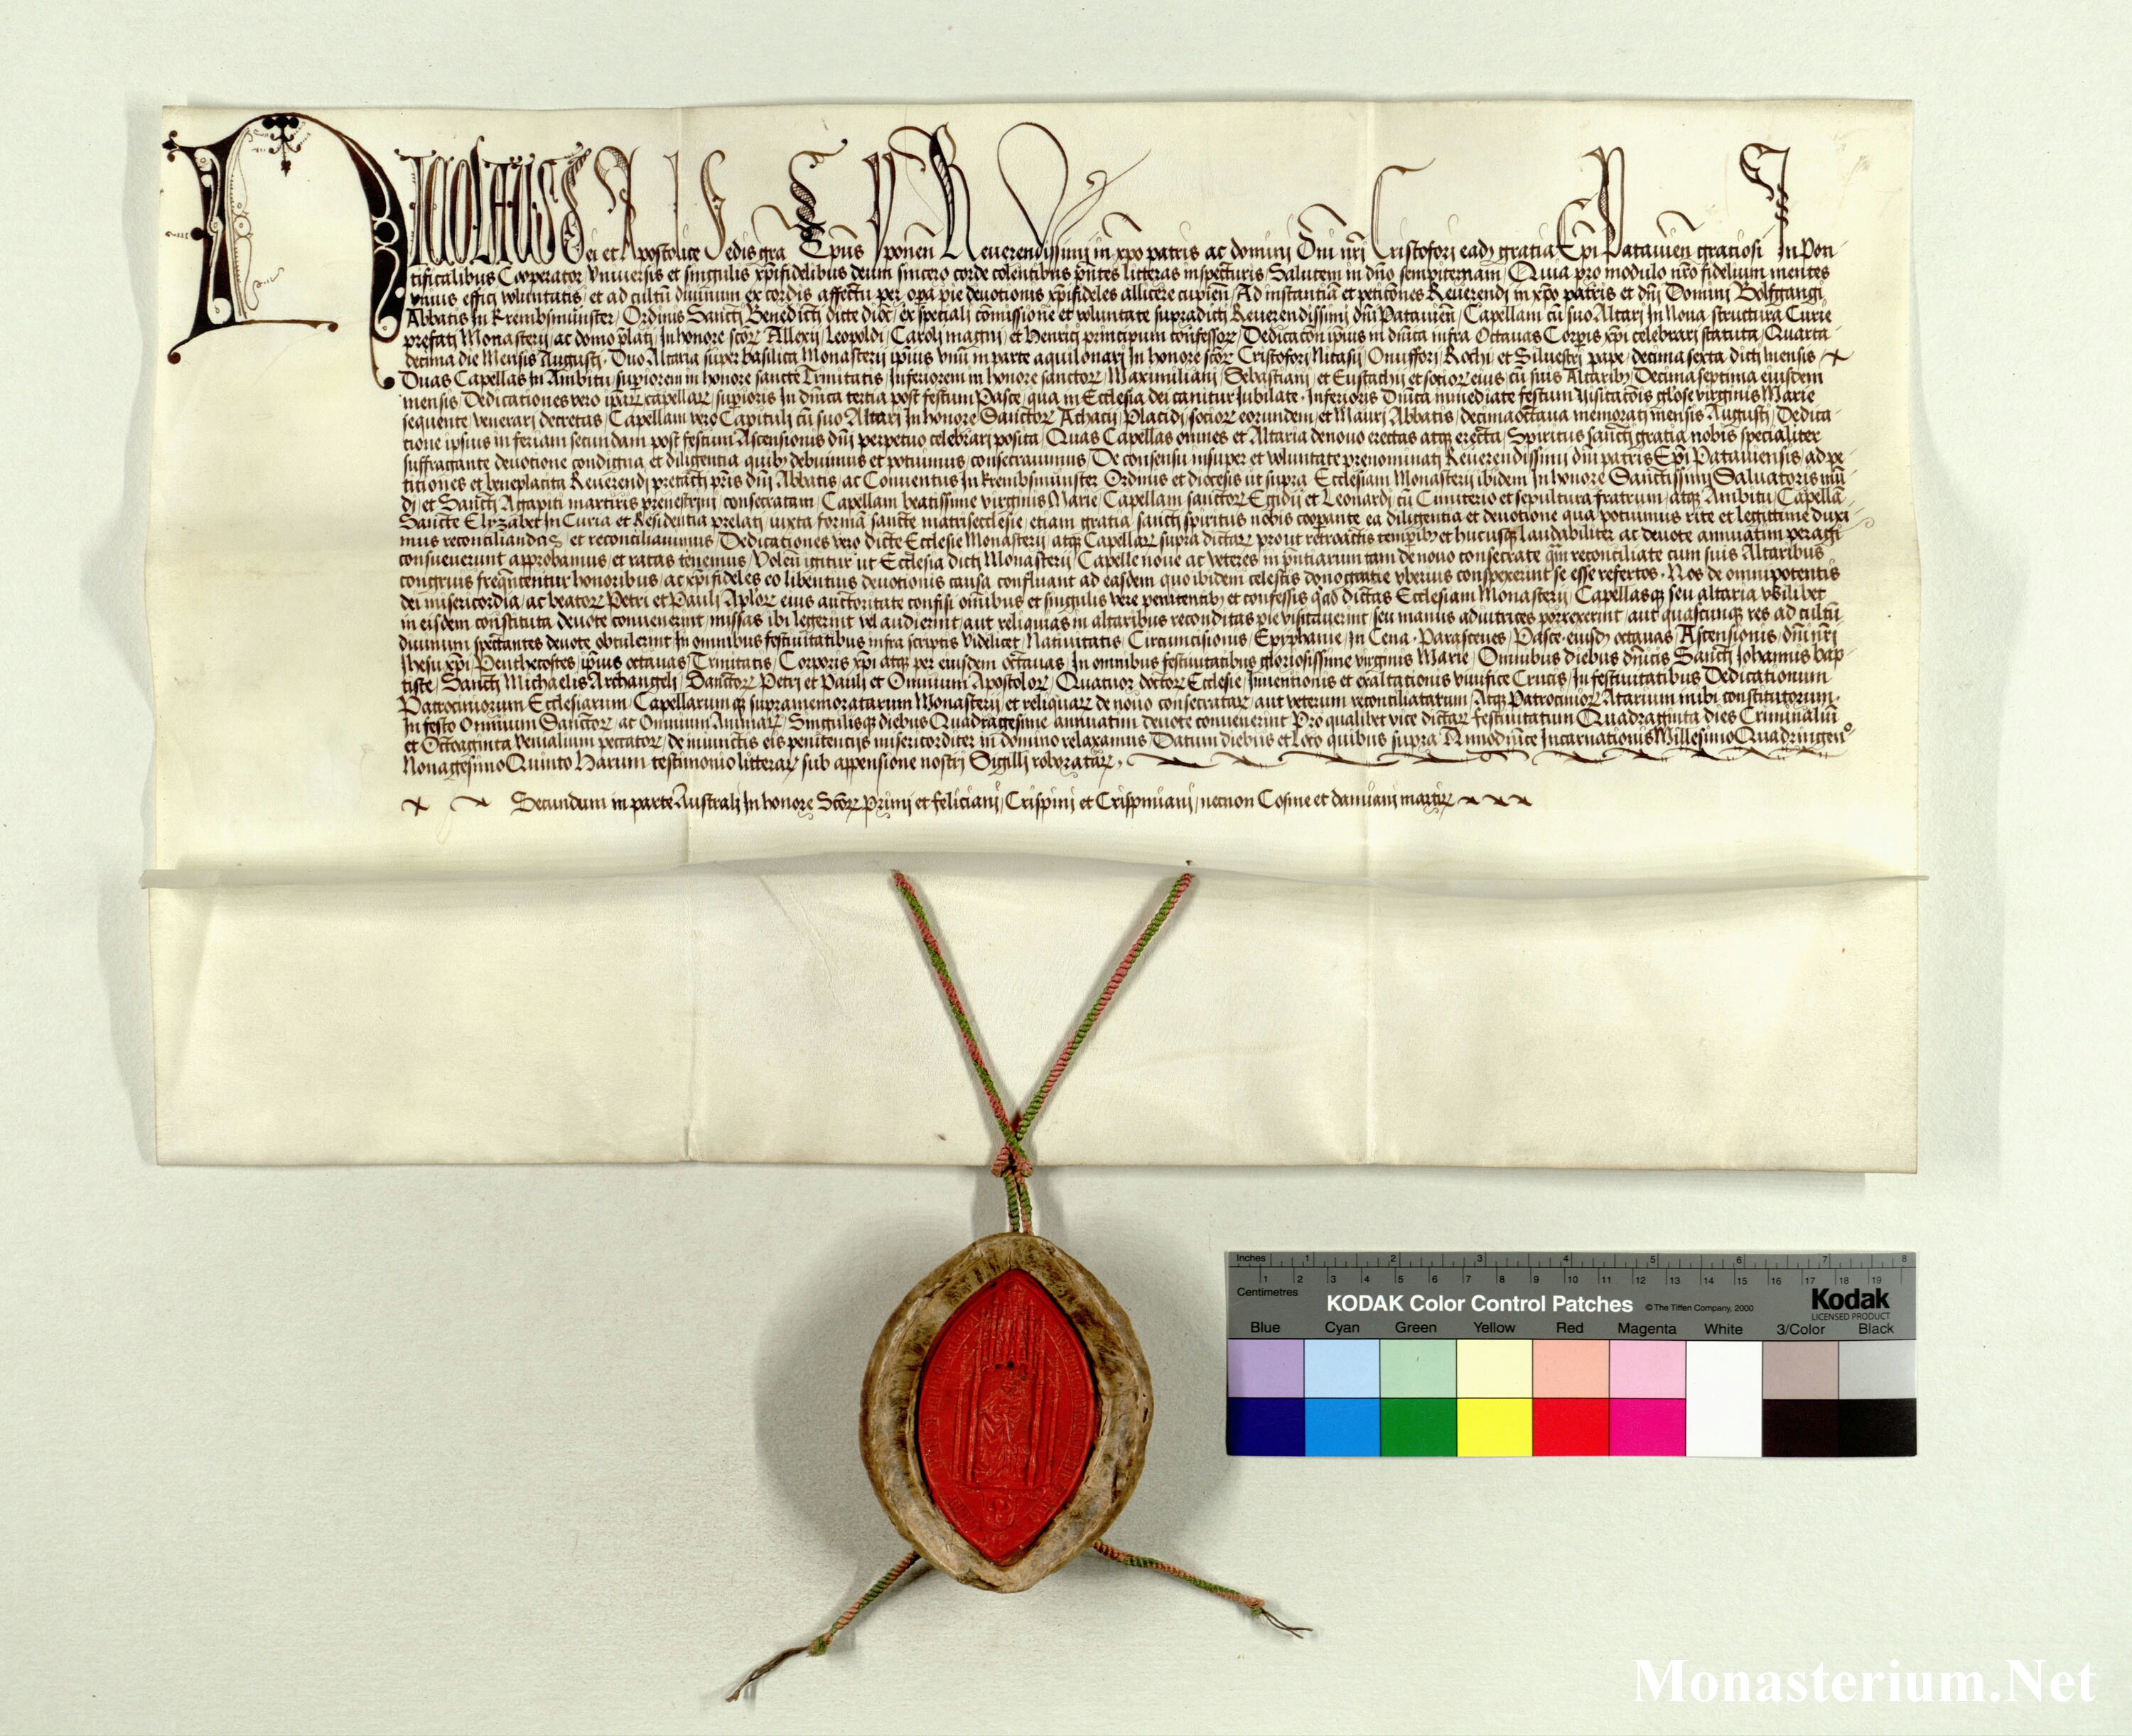 Nicolaus Dei et Apostolice Sedis gra Epus Yponen Reuerendissimi in xpo patris ac domini Dni nri Cristofori eadm gratia Epi Patauien gratiosi In Pon
tificalibus Cooperator Vniuersis et singulis xpifidelibus deum sincero corde colentibus pntes litteras inspecturis Salutem in dno sempiternam Quia pro modulo nro fidelium mentes
vnius effici voluntatis et ad cultu diuinum ex cordis affectu per opa pie deuotionis xpifideles allicere cupien Ad instantia et peticones Reuerendi in xpo patris et dni Domini Wolfgangi
Abbatis In Krembsmunster Ordinis Sancti Benedicti dicte dioc ex speciali comissione et voluntate supradicti Reuerendissimi dni Patauien Capellam cu suo Altari In Noua structura Curie
prefati Monasterij ac domo plati In honore scor Allexij Leopoldi Caroli magni et Henrici principum confessor Dedicacon ipius in dnica infra Octauas Corpis xpi celebrari statuta Quarta
decima die Mensis Augusti Duo Altaria super basilica Monasterij ipius vnu in parte aquilonari In honore scor Cristofori Nitasij Onuffori Rochi et Siluestri pape decima sexta dicti mensis
Duas Capellas In Ambitu supiorem in honore sancte Trinitatis Inferiorem in honore sanctor Maximiliani Sebastiani et Eustachij et socior eius cu suis Altarib Decima septima eiusdem
mensis Dedicationes vero ipar capellar supioris In dnica tertia post festum Pasce qua in Ecclesia dei canitur Iubilate Inferioris Dnica inmediate festum Visitacois glose virginis Marie
sequente venerari decretas Capellam vero Capituli cu suo Altari In honore Sanctor Achacij Placidi socior eorundem et Mauri Abbatis decimaoctaua memorati mensis Augusti Dedica
tione ipsius in feriam secundam post festum Ascensionis dni perpetuo celebrari posita Quas Capellas omnes et Altaria denouo erectas atq erecta Spiritus sancti gratia nobis specialiter
suffragante deuotione condigna et diligentia quib debuimus et potuimus consecrauimus De consensu insuper et voluntate prenominati Reuerendissimi dni patris Epi Patauiensis ad pe
titiones et beneplacita Reuerendi pretacti pris dni Abbatis ac Conuentus In Krembsmunster Ordinis et diocesis ut supra Ecclesiam Monasterij ibidem In honore Sanctissimi Saluatoris mu
di et Sancti Agapiti martiris prenestrini consecratam Capellam beatissime virginis Marie Capellam sanctor Egidij et Leonardi cu Cimiterio et sepultura fratrum atq Ambitu Capella
Sancte Elyzabet In Curia et Residentia prelati iuxta forma sancte matrisecclesie etiam gratia sancti spiritus nobis coopante ea diligentia et deuotione qua potuimus rite et legittime duxi
mus reconciliandas et reconciliauimus Dedicationes vero dicte Ecclesie Monasterij atq Capellar supra dictar prout retroactis tempib et hucusq laudabiliter ac deuote annuatim peragi
consueuerunt approbamus et ratas tenemus Volen igitur ut Ecclesia dicti Monasterij Capelle noue ac veteres in pntiarum tam denouo consecrate qm reconciliate cum suis Altaribus
congruis frequententur honoribus ac xpifideles eo libentius deuotionis causa confluant ad easdem quo ibidem celestis dono gratie vberius conspexerint se esse refertos Nos de omnipotentis
dei misericordia ac beator Petri et Pauli Aplor eius auctoritate confisi omibus et singulis vere penitentib et confessis qad dictas Ecclesiam Monasterij Capellasq seu altaria vbilibet
in eisdem constituta deuote conuenerint missas ibi legerint vel audierint aut reliquias in altaribus reconditas pie visitauerint seu manus adiutrices porrexerint aut quascunq res ad cultu
diuinum spectantes deuote obtulerint In omnibus festiuitatibus infra scriptis Videlicet Natiuitatis Circumcisionis Epyphanie In Cena Parasceues Pasce eiusdm octauas Ascensionis dni nri
Ihesu xpi Penthecostes ipius octauas Trinitatis Corporis xpi atq per eiusdem octauas In omnibus festiuitatibus gloriosissime virginis Marie Omnibus diebus dnicis Sancti Iohannis bap
tiste Sancti Michaelis Archangeli Sanctor Petri et Pauli et Omnium Apostolor Quatuor doctor Ecclesie Inuentionis et exaltationis viuifice Crucis In festiuitatibus Dedicationum
Patrociniorum Ecclesiarum Capellarumq supramemoratarum Monasterij et reliquar de nouo consecratar aut veterum reconciliatarum Atq Patrocinior Atarium inibi constitutorum
In festo Omnium Sanctor ac Omnium Animar Singulisq diebus Quadragesime annuatim deuote conuenerint Pro qualibet vice dictar festiuitatum Quadraginta dies Criminaliu
et Octoaginta venialium peccator de iniunctis eis penitencijs misericorditer in domino relaxamus Datum diebus et Loco quibus supra Anno dnice Incarnationis Millesimo Quadringen
Nonagesimo Quinto Harum testimonio litterar sub appensione nostri Sigilli roboratar
Secundum in parte Australi In honore Scor Primi et feliciani Crispini et Crispiniani necnon Cosme et damiani martir
Inches 1 2 3 4 5 6 7 8
Centimetres 1 2 3 4 5 6 7 8 9 10 11 12 13 14 15 16 17 18 19
KODAK Color Control Patches © The Tiffen Company, 2000 Kodak
LICENSED PRODUCT
Blue Cyan Green Yellow Red Magenta White 3/Color Black
Monasterium.Net